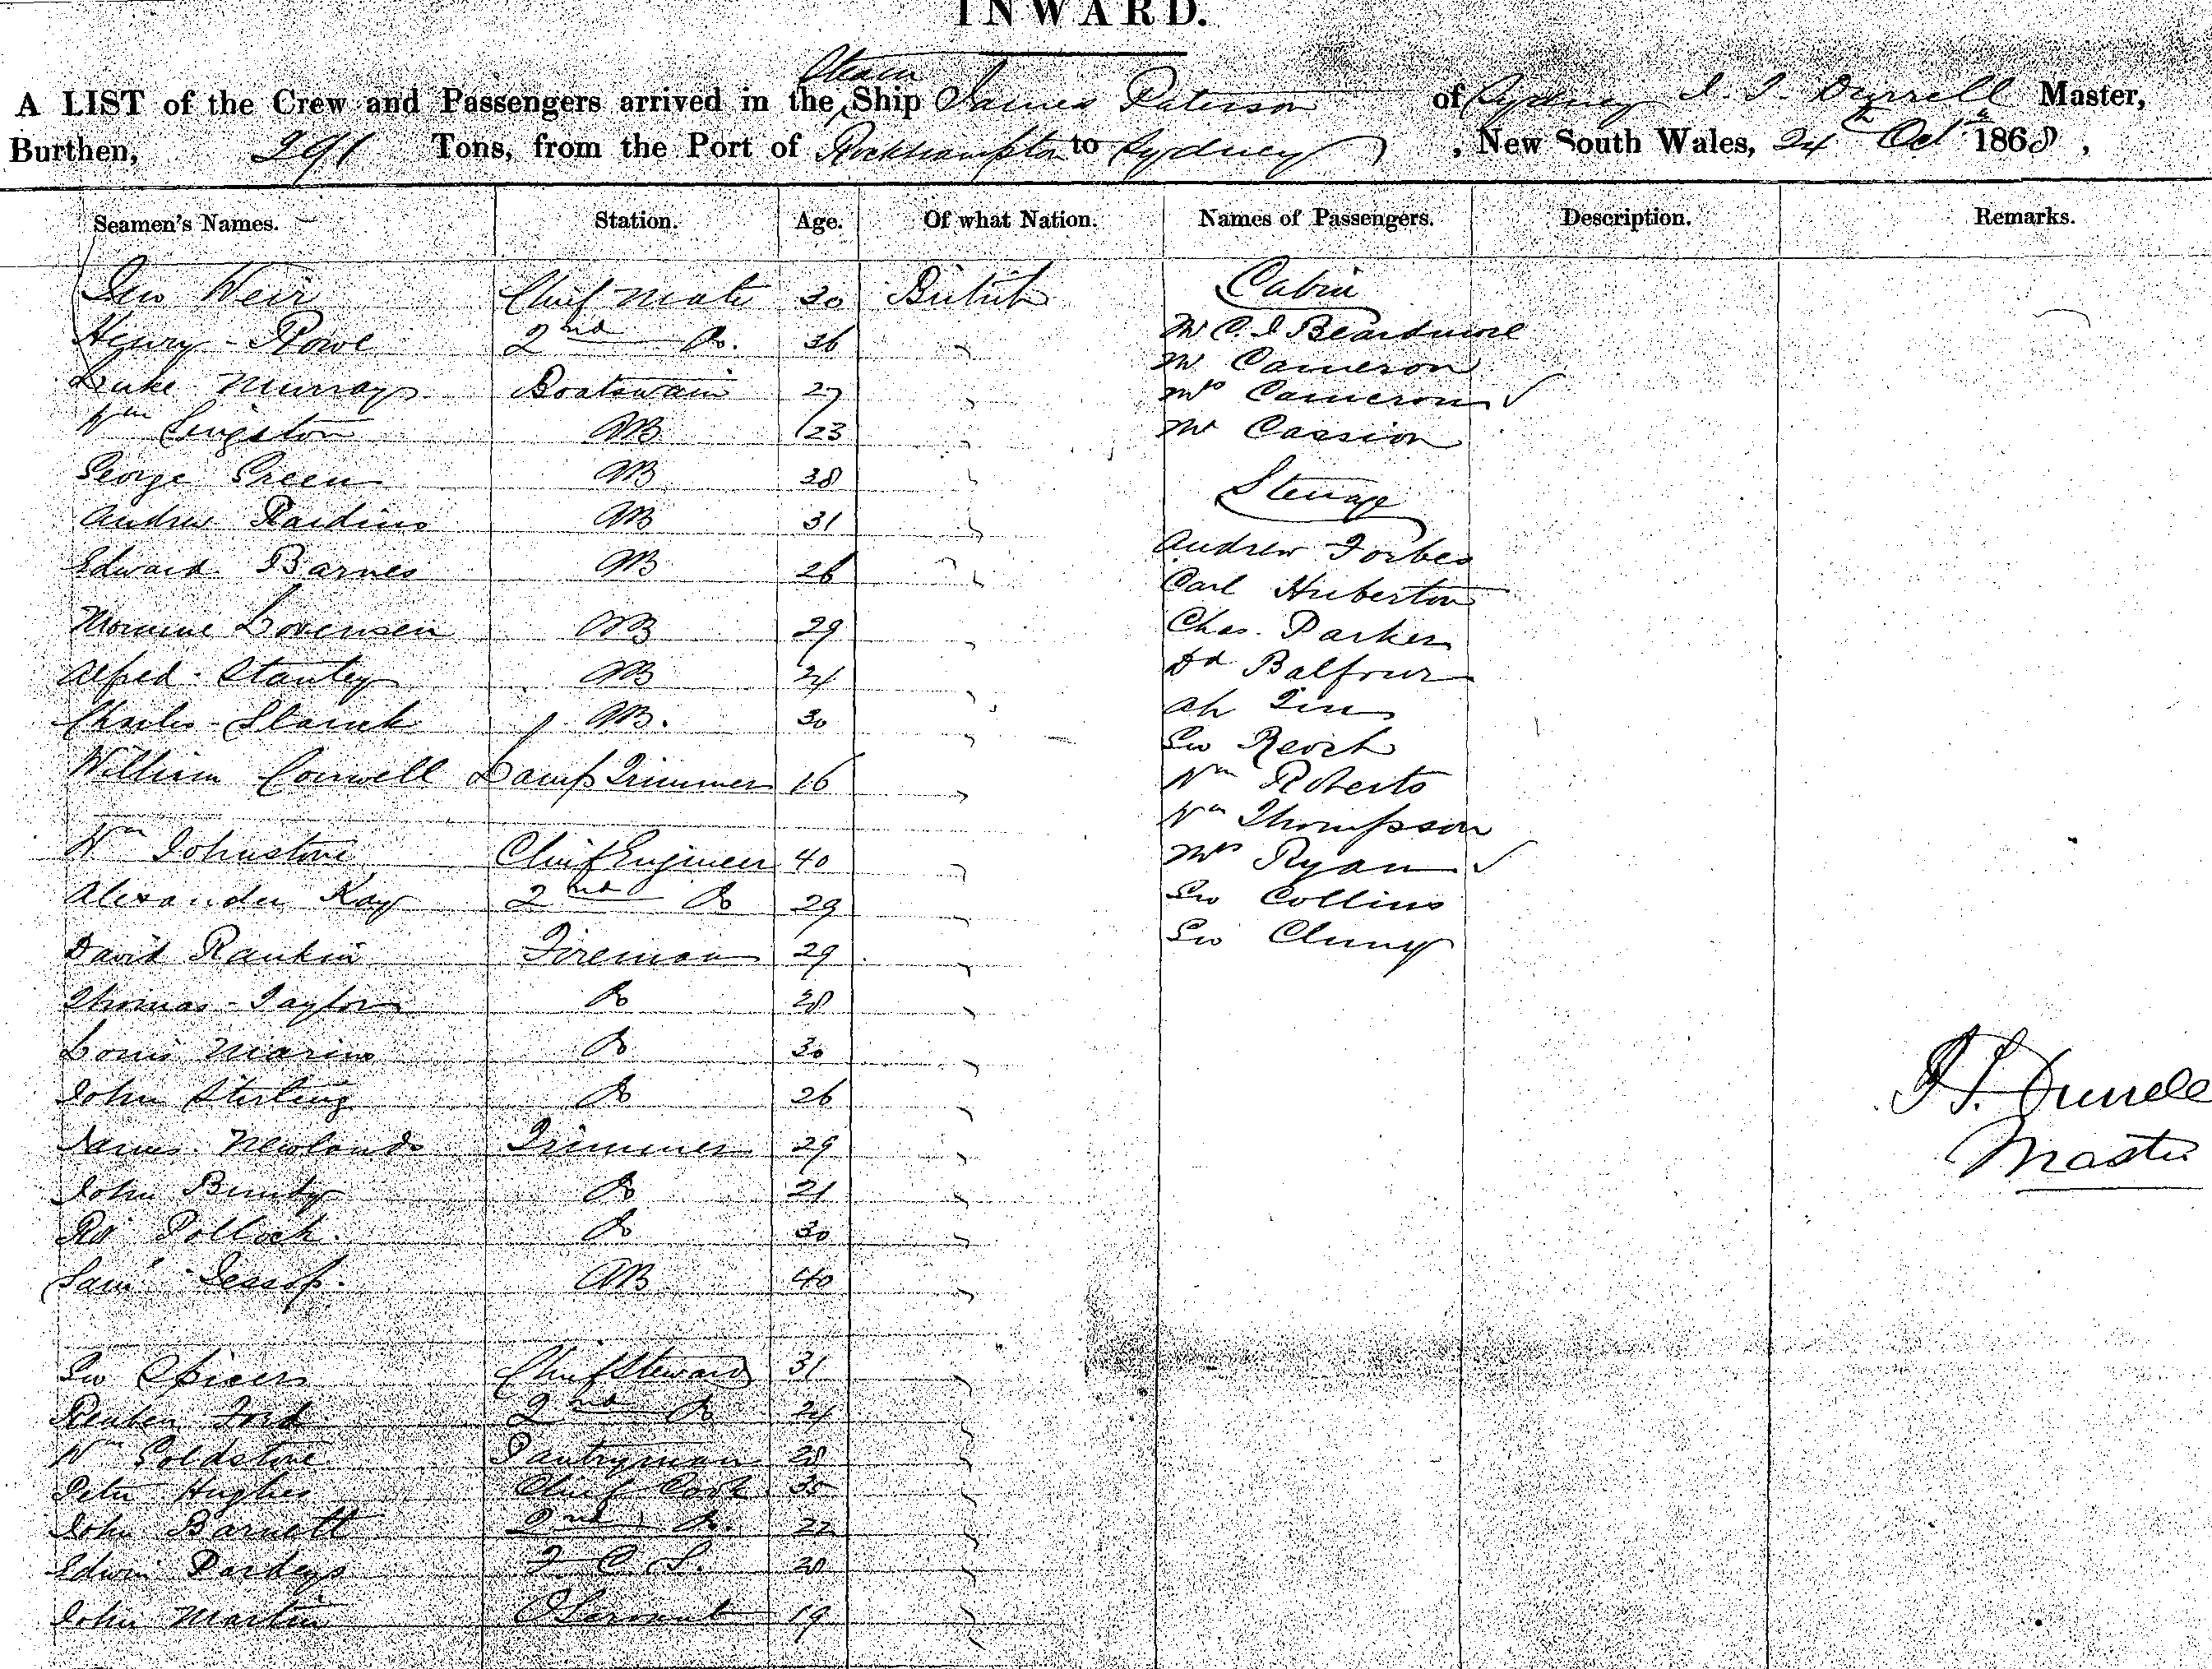 INWARD.
Steam
A LIST of the Crew and Passengers arrived in the Ship James Paterson of Sydney Master,
Burthen, 291 Tons, from the Port of Rockhampton to Sydney, New South Wales, 24th Octr 1868,
Seamen's Names. Station. Age. Of what Nation. Names of Passengers. Description. Remarks.
Geo Weir Chief Mate 30 British
Henry Rowe 2nd Do. 36 "
Luke Murray Boatswain 27 "
Wm Livingston AB 23 "
George Green AB 38 "
Andrew AB 31 "
Edward Barnes AB 26 "
Lorensen AB 29 "
Alfred Stanley AB 24 "
Charles AB. 30 "
William Lamp Trimmer 16 "
Wm Johnstone Chief Engineer 40 "
Alexander Kay 2nd Do 29 "
David Rankin Fireman 29 "
Thomas Taylor Do 28 "
Louis Marino Do 30 "
John Stirling Do 26 "
James Newlands Trimmer 29 "
John Bundy Do 21 "
Rd Pollock. Do 30 "
Saml Jessop. AB 40 "
Geo Spicer Chief Steward 31 "
Reuben Ford 2nd Do 24 "
Wm Goldstone Pantryman 28 "
Peter Hughes Chief Cook 35 "
John Barnett 2nd Do. 22 "
Edwin Pardey F. C. S. 28 "
John Martin 19 "
Cabin
Mr C. J Beardmore
Mr Cameron
Mrs Cameron ✓
Mr Cassion
Steerage
Andrew Forbes
Carl Huberton
Chas. Parker
Dd Balfour
Ah
Geo
Wm Roberts
Wm Thompson
Mrs Ryan ✓
Geo Collins
Geo Cluny
Master